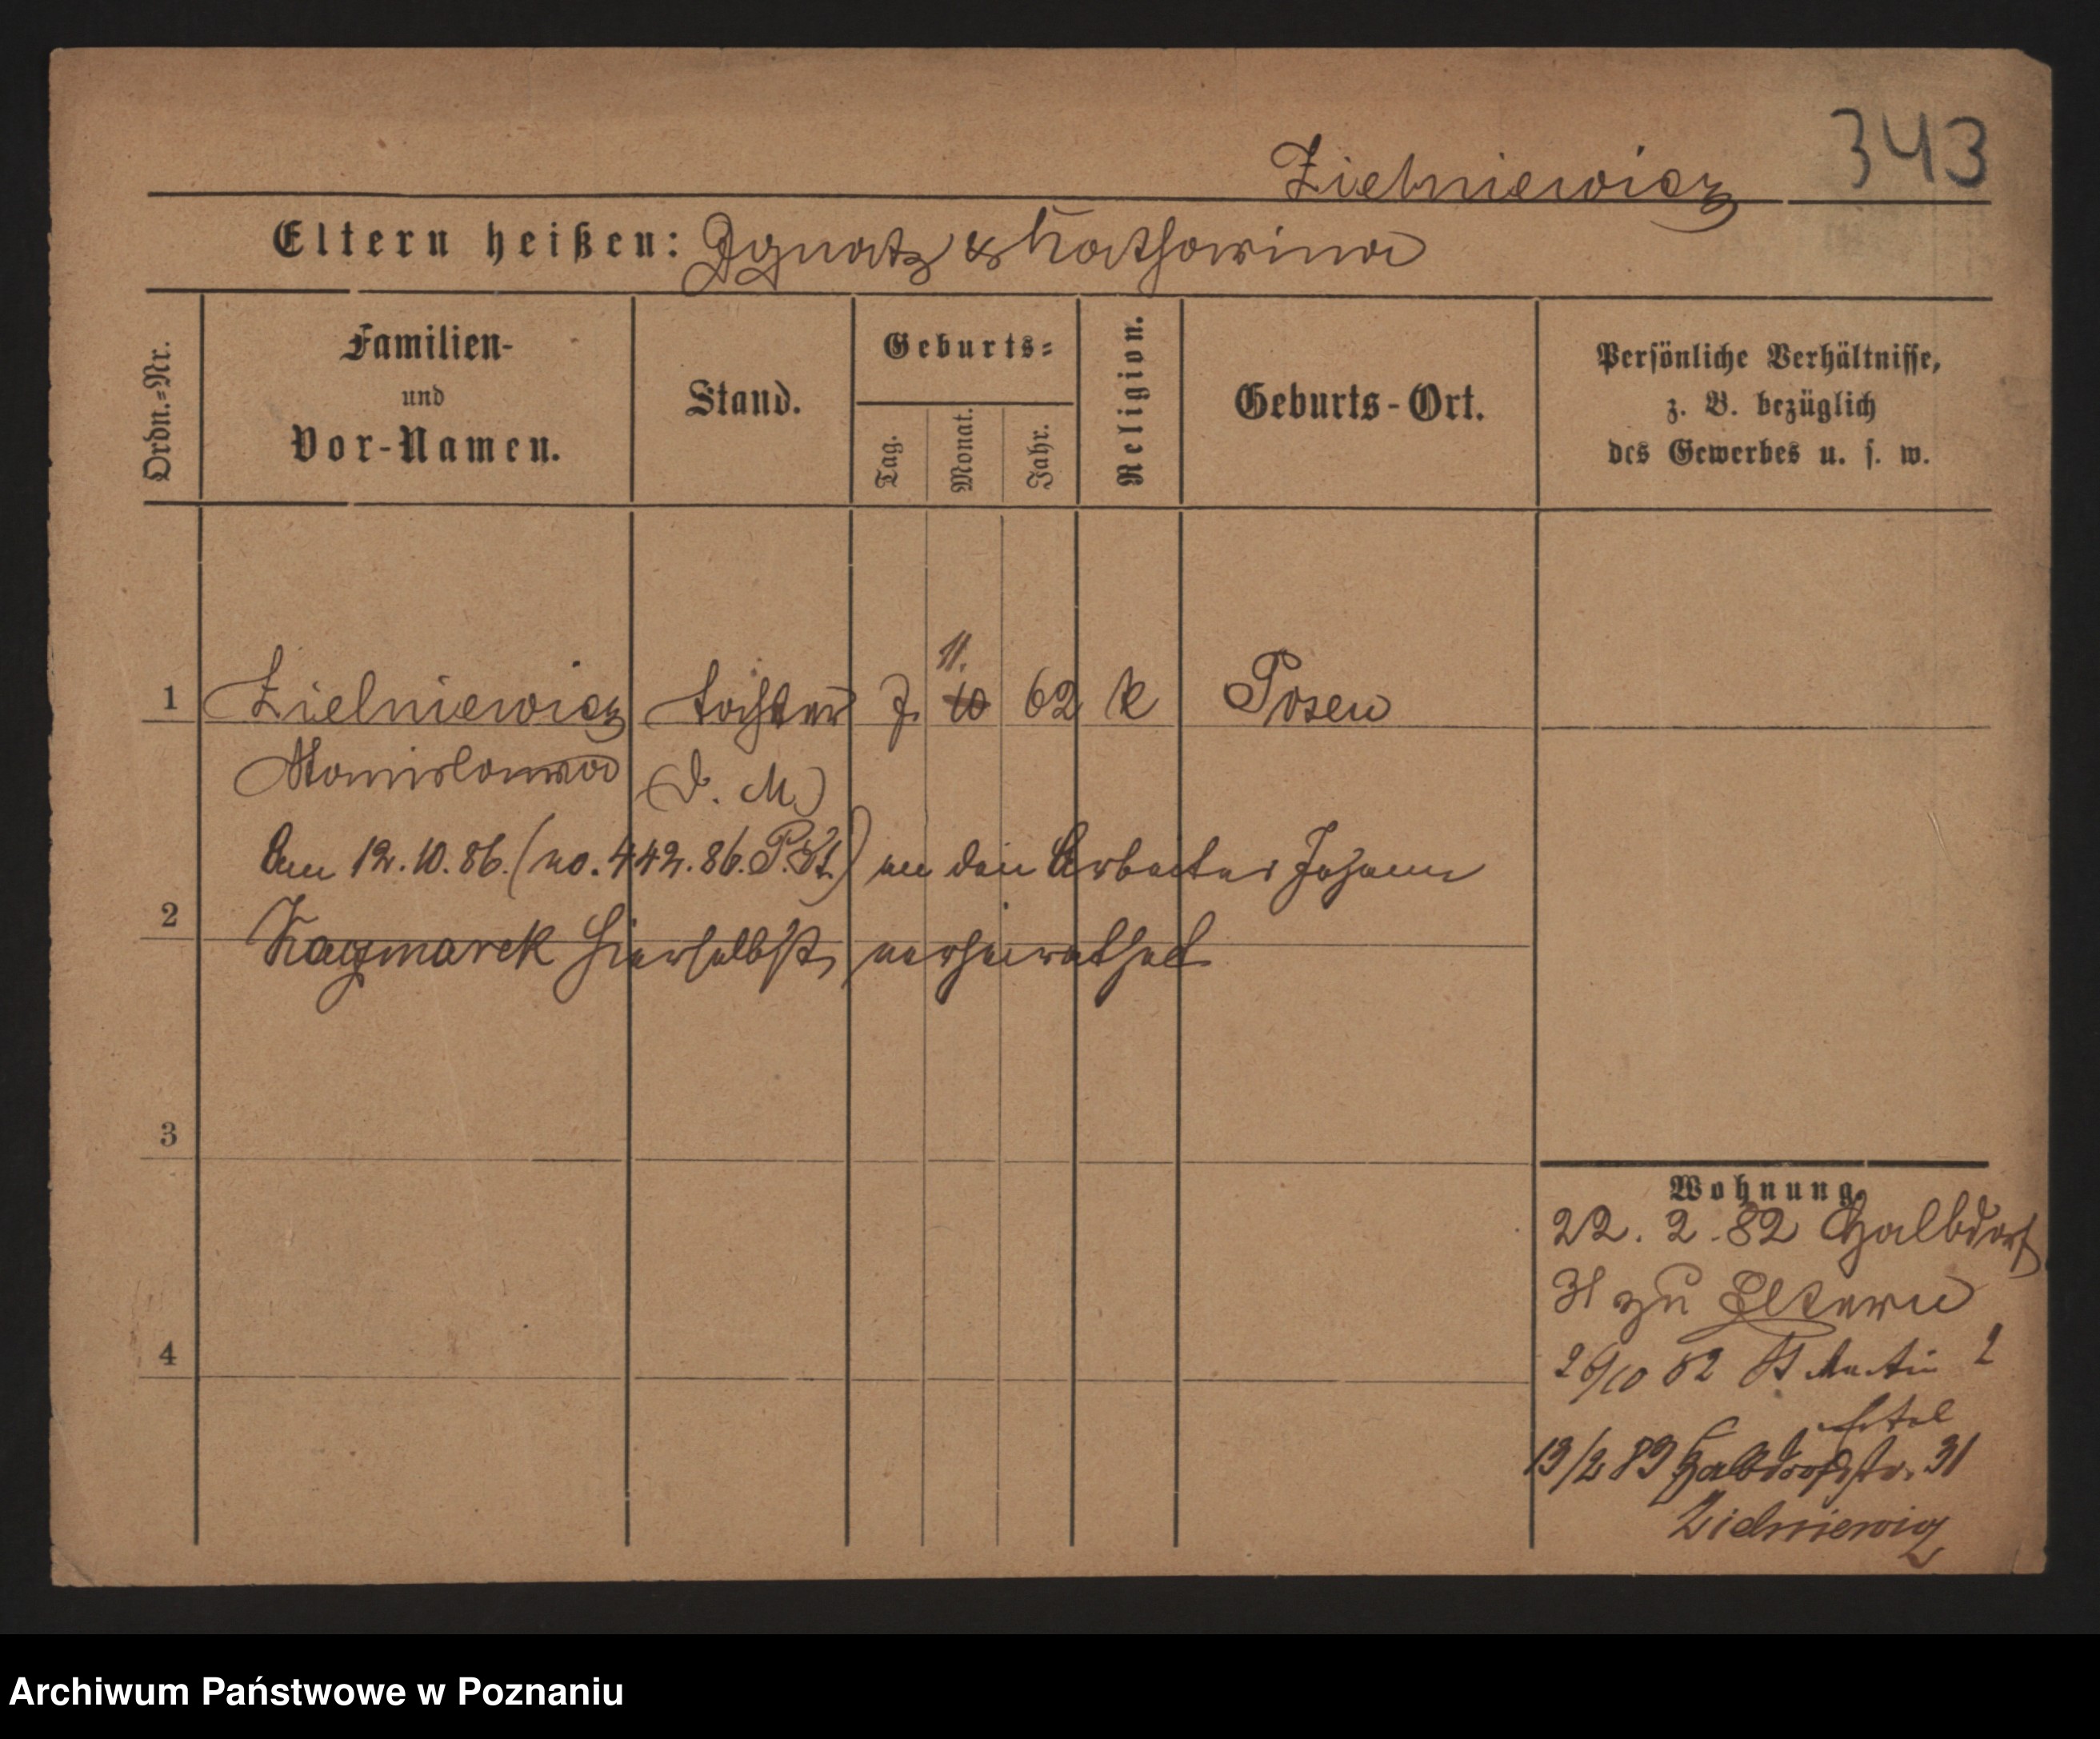 343
Zielniewicz
Eltern heißen: Ignatz & Katharina
Ordn.=Nr.
Familien-
und
Vor-Namen.
Stand.
Geburts=
Tag.
Monat.
Jahr.
Religion.
Geburts-Ort.
Persönliche Verhältnisse,
z. B. bezüglich
des Gewerbes u. s. w.
11.
1 Zielniewicz Tochter 7. 10 62 k Posen
Stanislawa (D. M.)
Am 12.10.86. (no. 442.86. P. St.) an den Arbeiter Johann
2
Kaczmarek hierselbst, verheirathet
3
Wohnung.
22. 2. 82 Halbdorf
31 zu Eltern
4
26/10 82 St Martin 2
13/2 83 Halbdorfstr. 31
Zielniewicz
Archiwum Państwowe w Poznaniu